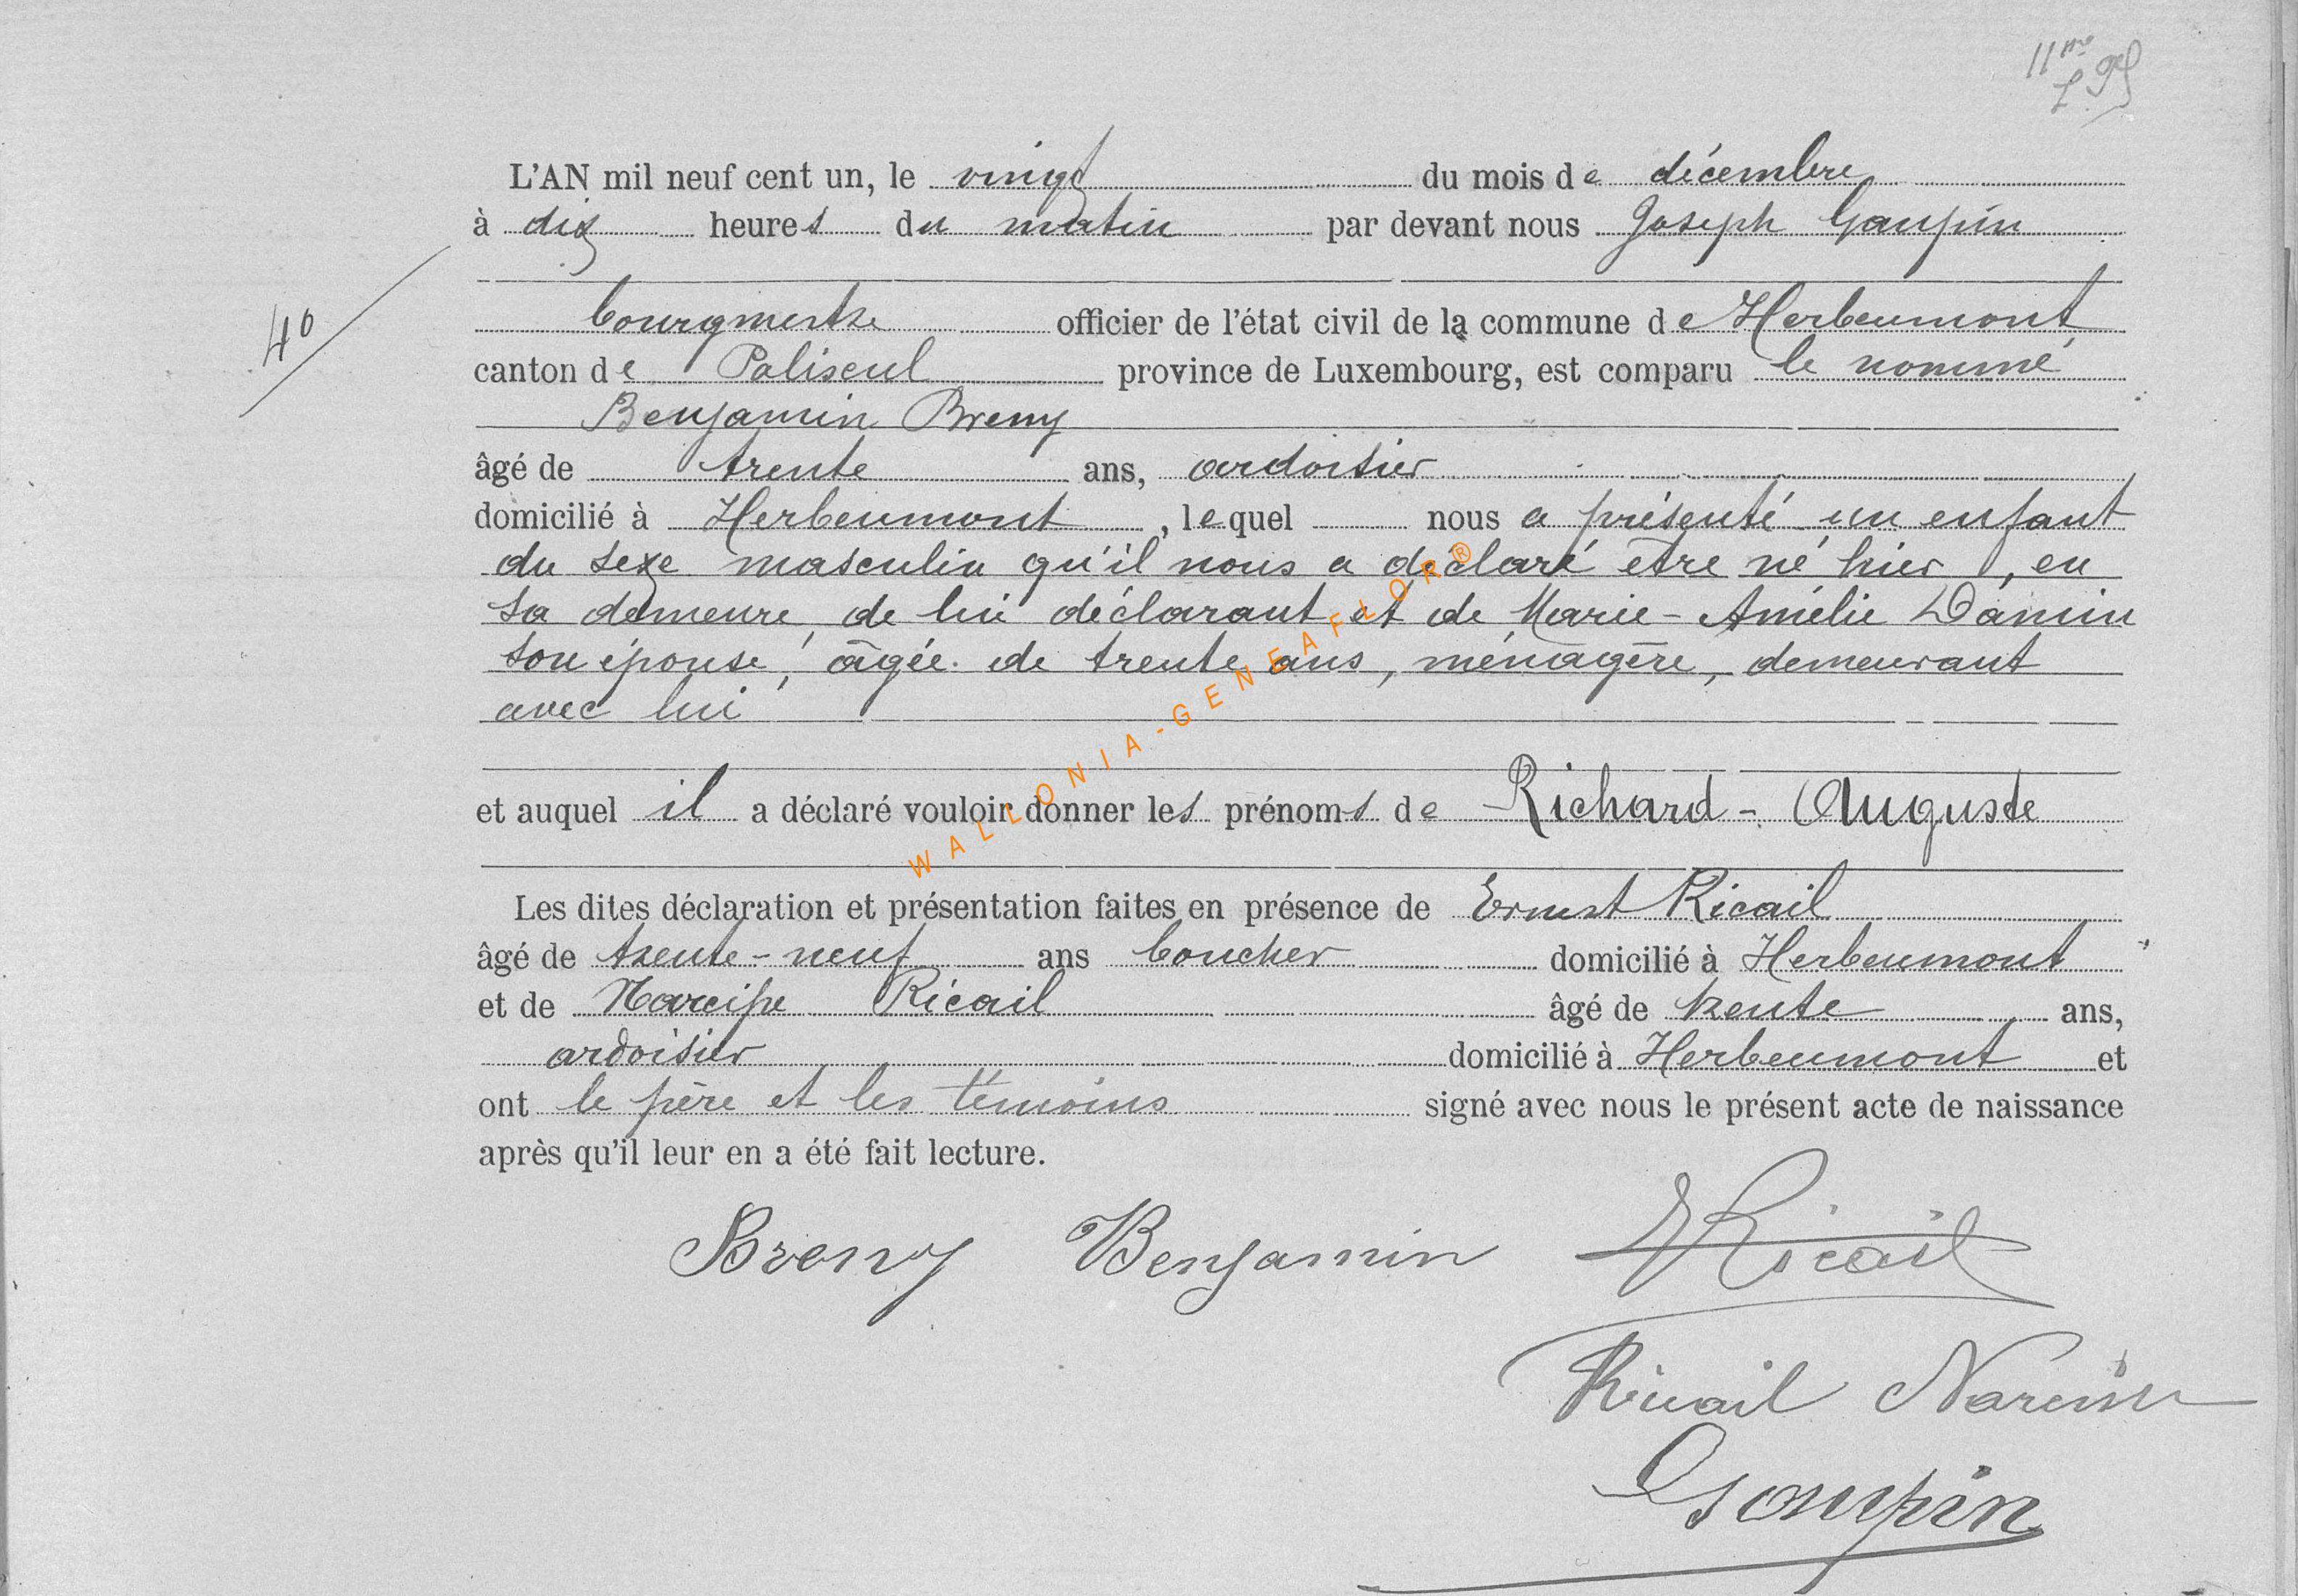 11me
L'AN mil neuf cent un, le vingt du mois de décembre
à dix heures du matin par devant nous Joseph Gaupin
40
bourgmestre officier de l'état civil de la commune de Herbeumont,
canton de Paliseul province de Luxembourg, est comparu le nommé
Benjamin Breny
âgé de trente ans, ardoisier
domicilié à Herbeumont, lequel nous a présenté un enfant
du sexe masculin qu'il nous a déclaré être né hier, en
sa demeure, de lui déclarant et de Marie-Amélie Damin
son épouse, âgée de trente ans, ménagère, demeurant
avec lui
et auquel il a déclaré vouloir donner les prénoms de Richard-Auguste
WALLONIA-GENEAFLOR®
Les dites déclaration et présentation faites en présence de Ernest Ricail
âgé de trente-neuf ans boucher domicilié à Herbeumont
et de Narcisse Ricail âgé de trente ans,
ardoisier domicilié à Herbeumont et
ont le père et les témoins signé avec nous le présent acte de naissance
après qu'il leur en a été fait lecture.
Breny Benjamin ERicail
Ricail Narcisse
Gaupin